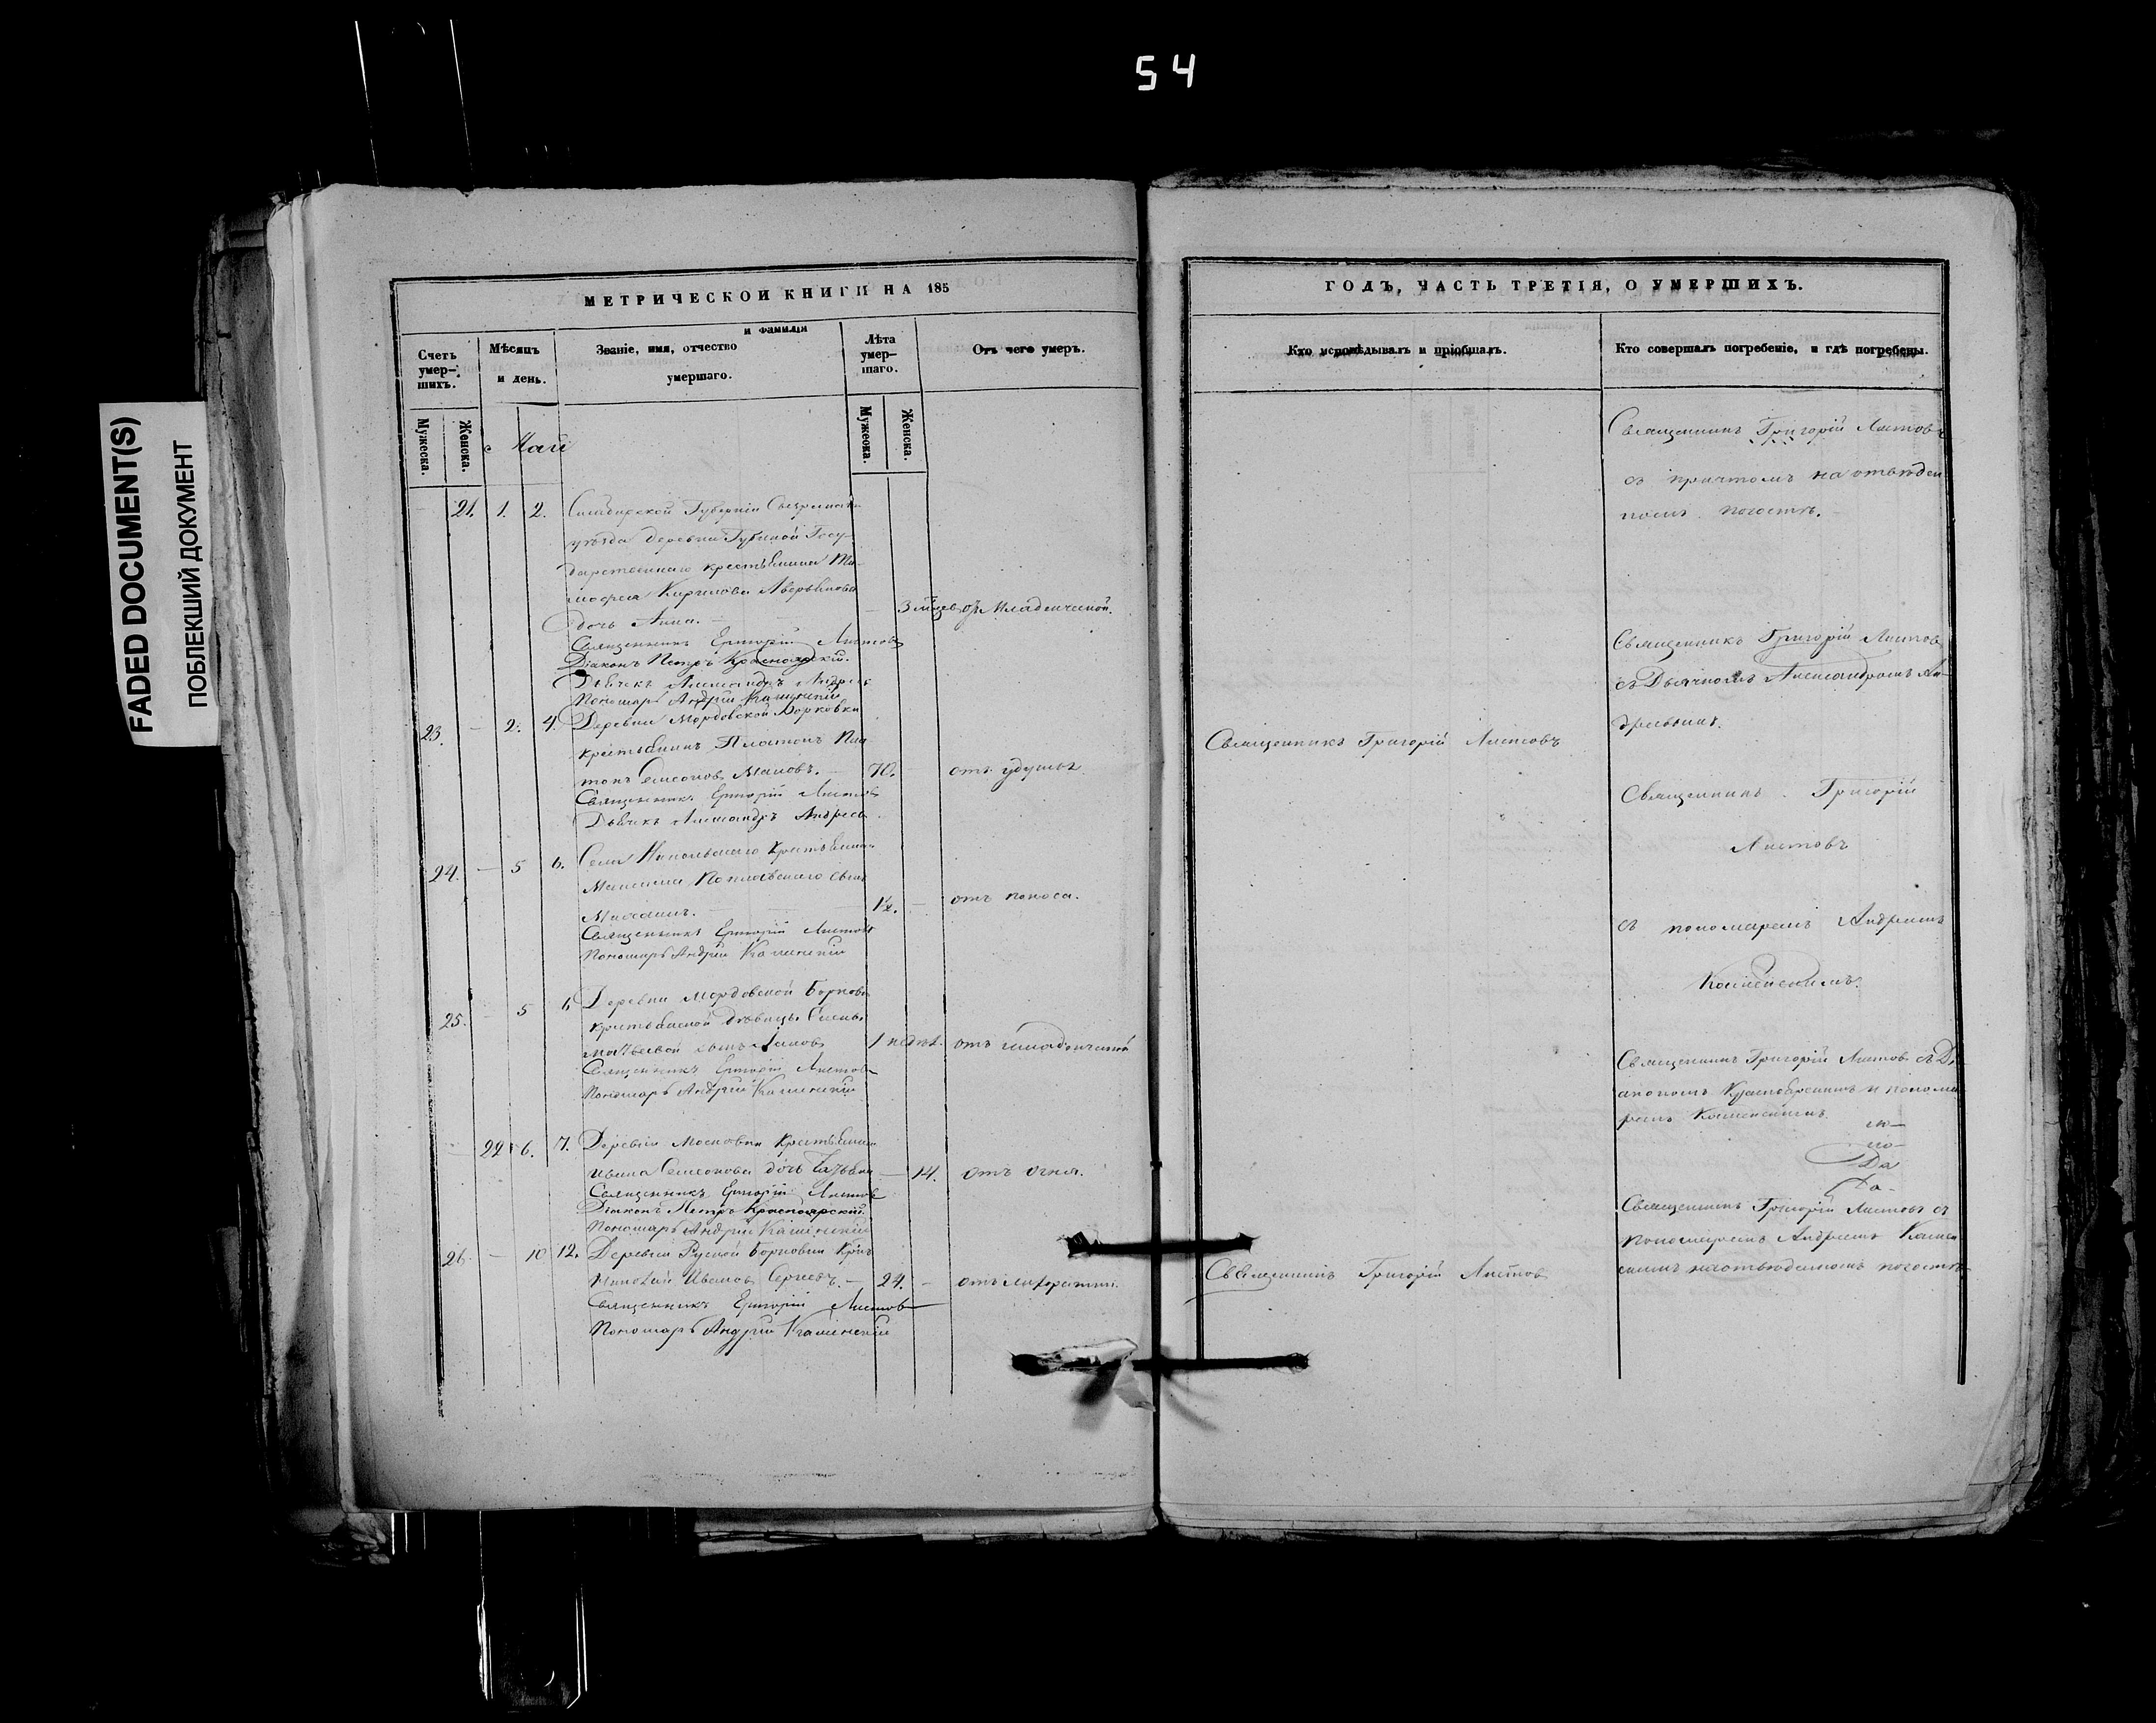 54
FADED DOCUMENT(S)
ПОБЛЕКШИЙ ДОКУМЕНТ
МЕТРИЧЕСКОЙ КНИГИ НА 185
Счетъ умер-шихъ.
Мужеска.
Женска.
Мѣсяцъ и день.
Званіе, имя, отчество и фамилія умершаго.
Лѣта умер-шаго.
Мужеска.
Женска.
Отъ чего умеръ.
Май
21. 1. 2. Симбирской Губерніи
уѣзда деревни Губиной Госу-
дарственнаго крестьянина Ти-
мофея Кирилова Аверьянова
дочь Анна. — 3 мѣсяц. отъ Младенческой.
Священникъ Григорій Листовъ
Діаконъ Петръ Красноярскій.
Дьячекъ Александръ Андреевъ
Пономарь Андрей Каменскій
23. — 2. 4. Деревни Мордовской Борковки
крестьянинъ Платонъ Пла-
тонъ Семенов — 70. — отъ удушья
Священникъ Григорій Листовъ
Дьячекъ Александръ Андреевъ
24. — 5 6. Села Никольскаго крестьянина
сынъ
1½. — отъ поноса.
Священникъ Григорій Листовъ
Пономарь Андрей Каменскій
25. — 5 6 Деревни Мордовской Борковки
крестьянской дѣвицы
сынъ 1 недѣл. отъ младенческой
Священникъ Григорій Листовъ
Пономарь Андрей Каменскій
— 22 6. 7. Деревни Московки крестьянина
Ивана Семенова дочь Татьяна — 14. отъ огня.
Священникъ Григорій Листовъ
Діаконъ Петръ Красноярскій.
Пономарь Андрей Каменскій
26. — 10 12. Деревни Руской Борковки
Иванов Сергеевъ. — 24. —
Священникъ Григорій Листовъ
Пономарь Андрей Каменскій
ГОДЪ, ЧАСТЬ ТРЕТІЯ, О УМЕРШИХЪ.
Кто исповѣдывалъ и пріобщалъ.
Кто совершалъ погребеніе, и гдѣ погребены.
Священникъ Григорій Листовъ
съ причтомъ на отведен
номъ погостѣ.
Священникъ Григорій Листов
съ Дьячкомъ Александромъ Ан-
дреевымъ.
Священникъ Григорій Листовъ
Священникъ Григорій
Листовъ
съ пономаремъ Андреемъ
Каменскимъ.
Священникъ Григорій Листов съ Ді
акономъ и понома
ремъ Каменскимъ.
Священникъ Григорій Листовъ съ
Пономаремъ Андреемъ Камен
скимъ на отведеномъ погостѣ
Священникъ Григорій Листов